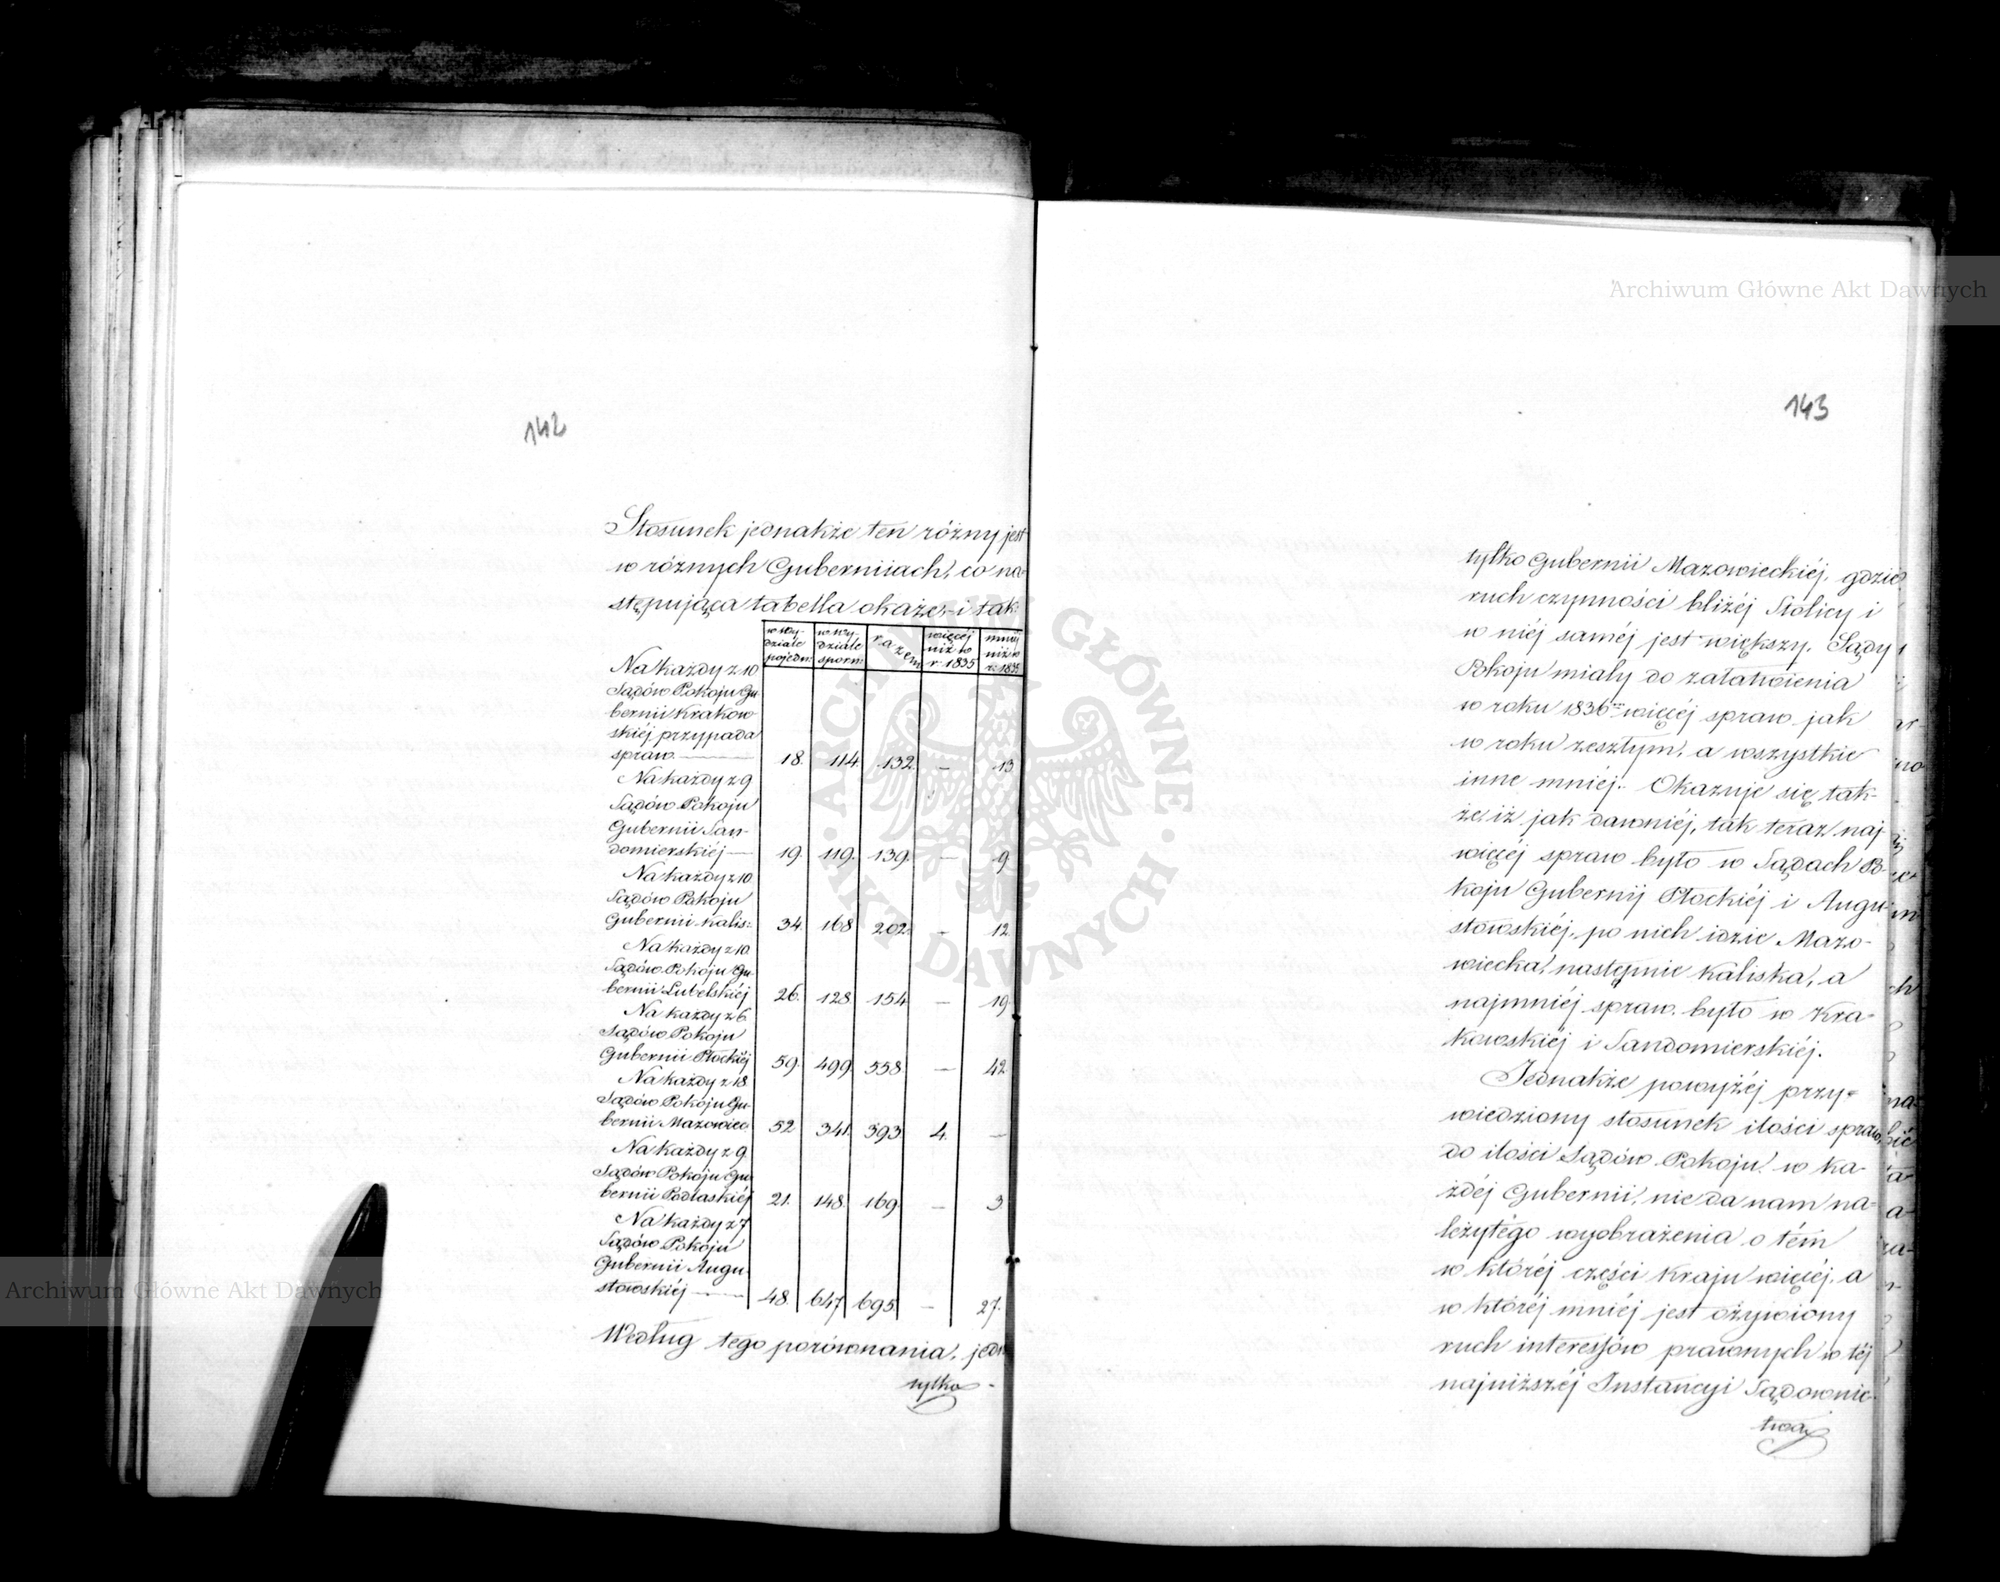 142
Stosunek jednakże ten różny jest
w różnych Guberniiach, co na-
stępująca tabella okaże, i tak:
w wy- w wy- razem więcéj mniéj
dziale dziale niż w niż w
pojedn: sporn: r. 1835 r. 1835
Na każdy z 10
Sądów Pokoju Gu-
bernii Krakow-
skiéj przypada
spraw 18. 114. 132. — 13
Na każdy z 9
Sądów Pokoju
Gubernii San-
domierskiéj 19. 119. 139. — 9
Na każdy z 10
Sądów Pokoju
Gubernii Kalis: 34. 168 202. — 12.
Na każdy z 10
Sądów Pokoju Gu-
bernii Lubelskiéj 26. 128. 154 — 19
Na każdy z 6
Sądów Pokoju
Gubernii Płockiéj 59. 499. 558. — 42
Na każdy z 18
Sądów Pokoju Gu-
bernii Mazowiec: 52 341. 393. 4. —
Na każdy z 9
Sądów Pokoju Gu-
bernii Podlaskiéj 21. 148. 169. — 3
Na każdy z 7
Sądów Pokoju
Gubernii Augu-
stowskiéj 48. 647 695. — 27.
Według tego porównania,
tylko
143
tylko Gubernii Mazowieckiéj, gdzie
ruch czynności bliżéj Stolicy i
w niéj saméj jest większy, Sądy
Pokoju miały do załatwienia
w roku 1836 więcéj spraw jak
w roku zeszłym, a wszystkie
inne mniéj. Okazuje się tak-
że, iż jak dawniéj, tak teraz naj-
więcéj spraw było w Sądach Po-
koju Gubernij Płockiéj i Augu-
stowskiéj, po nich idzie Mazo-
wiecka, następnie Kaliska, a
najmniéj spraw było w Kra-
kowskiéj i Sandomierskiéj.
Jednakże powyżéj przy-
wiedziony stosunek ilości spraw,
do ilości Sądów Pokoju w ka-
żdéj Gubernii, nie da nam na-
leżytégo wyobrażenia o tém
w któréj części kraju więcéj a
w któréj mniéj jest ożywiony
ruch interessów prawnych w téj
najniższéj Instancyi Sądownic-
twa
Archiwum Główne Akt Dawnych
ARCHIWUM GŁÓWNE AKT DAWNYCH
Archiwum Główne Akt Dawnych